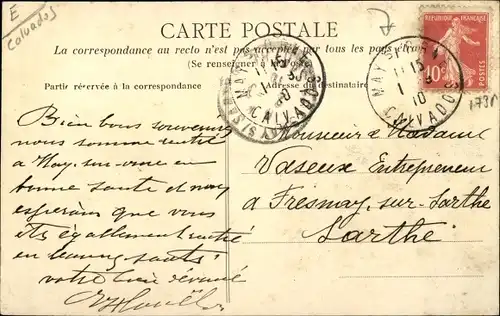 E
Calvados
CARTE POSTALE
La correspondance au recto n'est pas acceptée par tous les pays étrangers
(Se renseigner à la Poste)
Partie réservée à la correspondance
Adresse du destinataire
RÉPUBLIQUE FRANÇAISE
10c
MAY S
11 15
1
10
CALVADOS
MAY S
1
10
CALVADOS
Bien bons souvenirs
nous sommes rentré
a May, sur-orne en
bonne sante et nous
espérons que vous
ets egallement rentré
en bonne santé
votre bien dévoué
Monsieur et Madame
Vaseux Entrepreneur
a Fresnay, sur-Sarthe
Sarthe